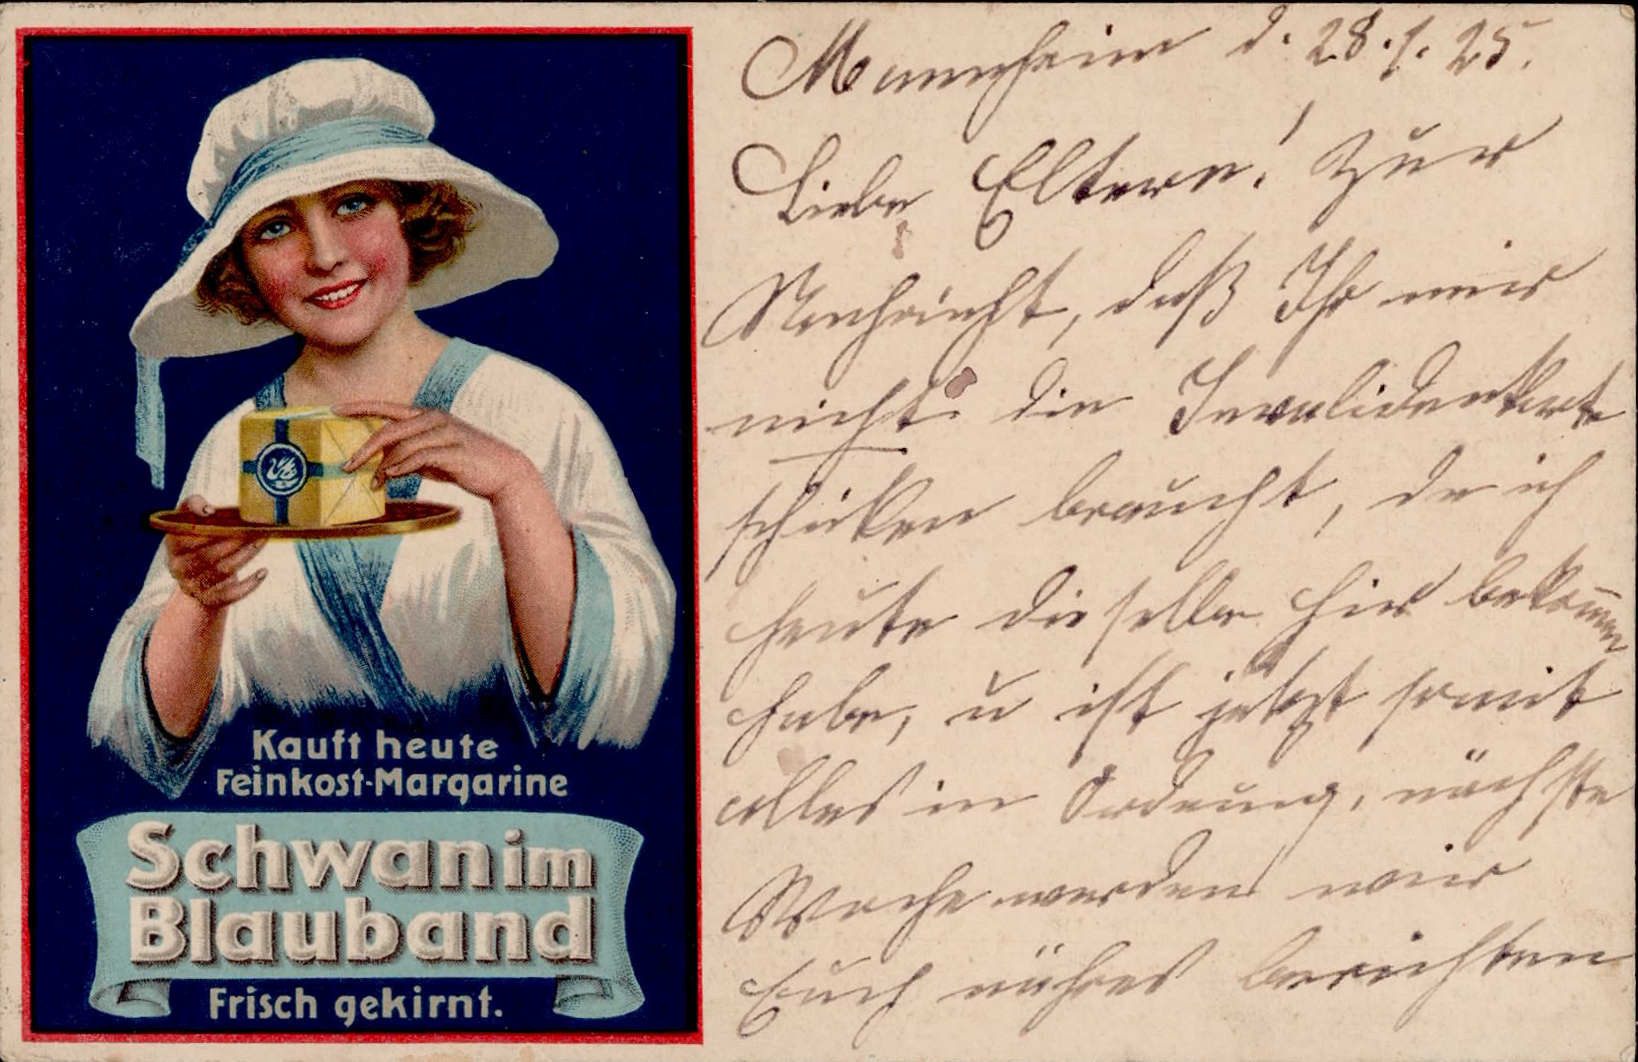 Kauft heute
Feinkost-Margarine
Schwan im
Blauband
Frisch gekirnt.
Mannheim d. 28.1.25.
Liebe Eltern! Zur
Nachricht, daß Ihr mir
nicht die Invalidenkarte
schicken braucht, da ich
heute dieselbe hier bekommen
habe, u ist jetzt somit
alles in Ordnung, nächste
Woche werden wir
Euch näheres berichten